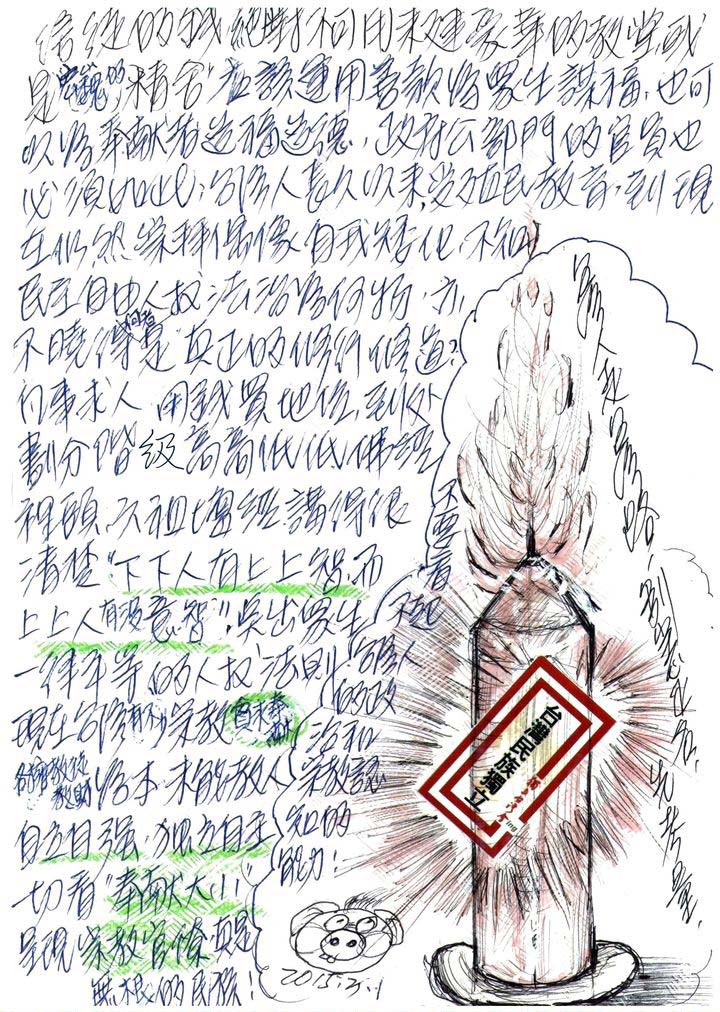 信徒的錢絕對不可用來建豪華的教堂或
是宏巍的"精舍"應該運用善款為眾生謀福,也可
以為奉献者造福造德,政府公部門的官員也
必須如此;台灣人長久以來,受殖民教育,到現
在仍然崇拜偶像自我矮化,不知
民主自由人权法治為何物,亦
不曉得何者是真正的修行修道?
凡事求人 用錢買地位,到处
劃分階級高高低低,佛經
裡頭,六祖壇經,講得很
清楚"下下人有上上智,而
上上人有沒意智",突出眾生
一律平等的人权法則!
現在台灣有不少宗教負末奉献
各謂教徒教財 為本,未能教人
自立自强,独立自主
切看"奉献大小"
呈現宗教官僚真是
無根的民族!
不要看
不起
台灣人
的政
治和
宗教認
知的
能力!
台灣民族獨立
2015.3.1